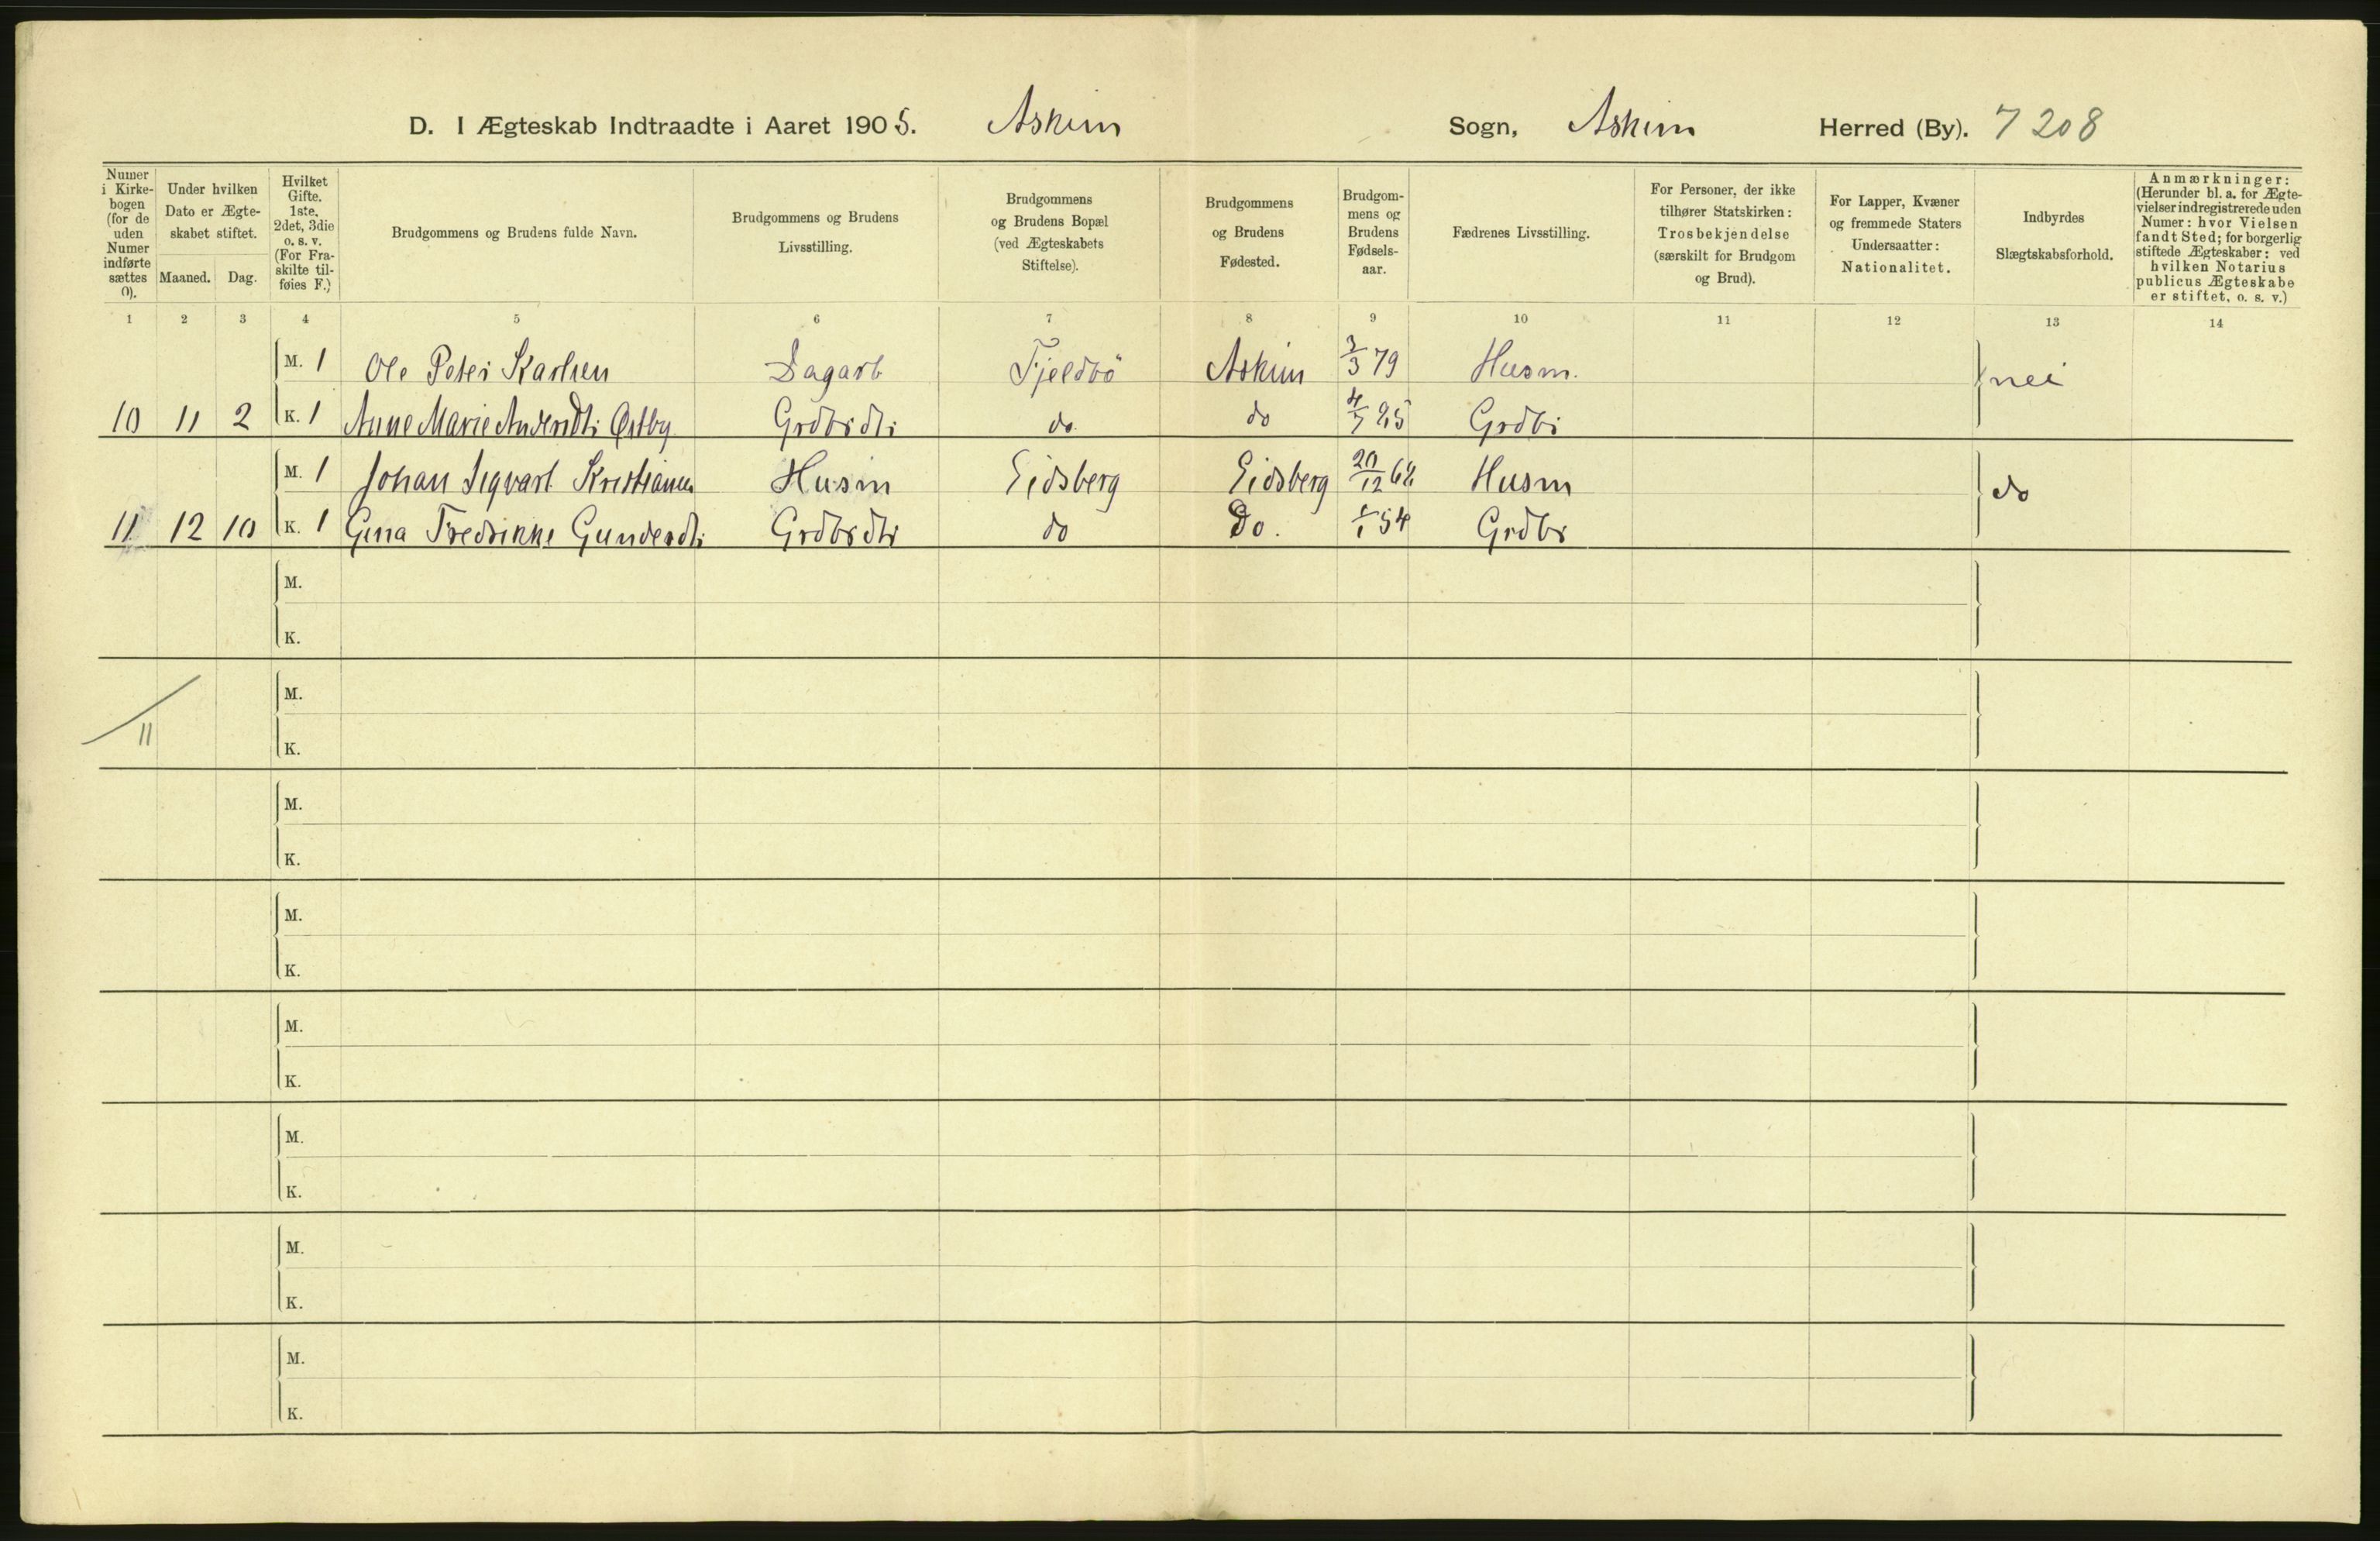 D. I Ægteskab Indtraadte i Aaret 1905. Askim Sogn, Askim Herred (By). 7 208
Numer i Kirkebogen (for de uden Numer indførte sættes 0).
Under hvilken Dato er Ægteskabet stiftet.
Maaned. Dag.
Hvilket Gifte. 1ste, 2det, 3die o. s. v. (For Fraskilte tilføies F.)
Brudgommens og Brudens fulde Navn.
Brudgommens og Brudens Livsstilling.
Brudgommens og Brudens Bopæl (ved Ægteskabets Stiftelse).
Brudgommens og Brudens Fødested.
Brudgommens og Brudens Fødselsaar.
Fædrenes Livsstilling.
For Personer, der ikke tilhører Statskirken: Trosbekjendelse (særskilt for Brudgom og Brud).
For Lapper, Kvæner og fremmede Staters Undersaatter: Nationalitet.
Indbyrdes Slægtskabsforhold.
Anmærkninger: (Herunder bl. a. for Ægtevielser indregistrerede uden Numer: hvor Vielsen fandt Sted; for borgerlig stiftede Ægteskaber: ved hvilken Notarius publicus Ægteskabe er stiftet, o. s. v.)
1 2 3 4 5 6 7 8 9 10 11 12 13 14
M. 1 Ole Peter Karlsen Dagarb Fjeldbö Askim 3/3 79 Husm. nei
10 11 2 K. 1 Anne Marie Andersdtr Østby Grdbrdtr do do Grdbr
M. 1 Johan Sigvart Kristiansen Husm Eidsberg Eidsberg 20/12 62 Husm do
11 12 10 K. 1 Gina Fredrikke Gundersdtr Grdbrdtr do Do. 1/1 54 Grdbr
M.
K.
M.
11 K.
M.
K.
M.
K.
M.
K.
M.
K.
M.
K.
M.
K.